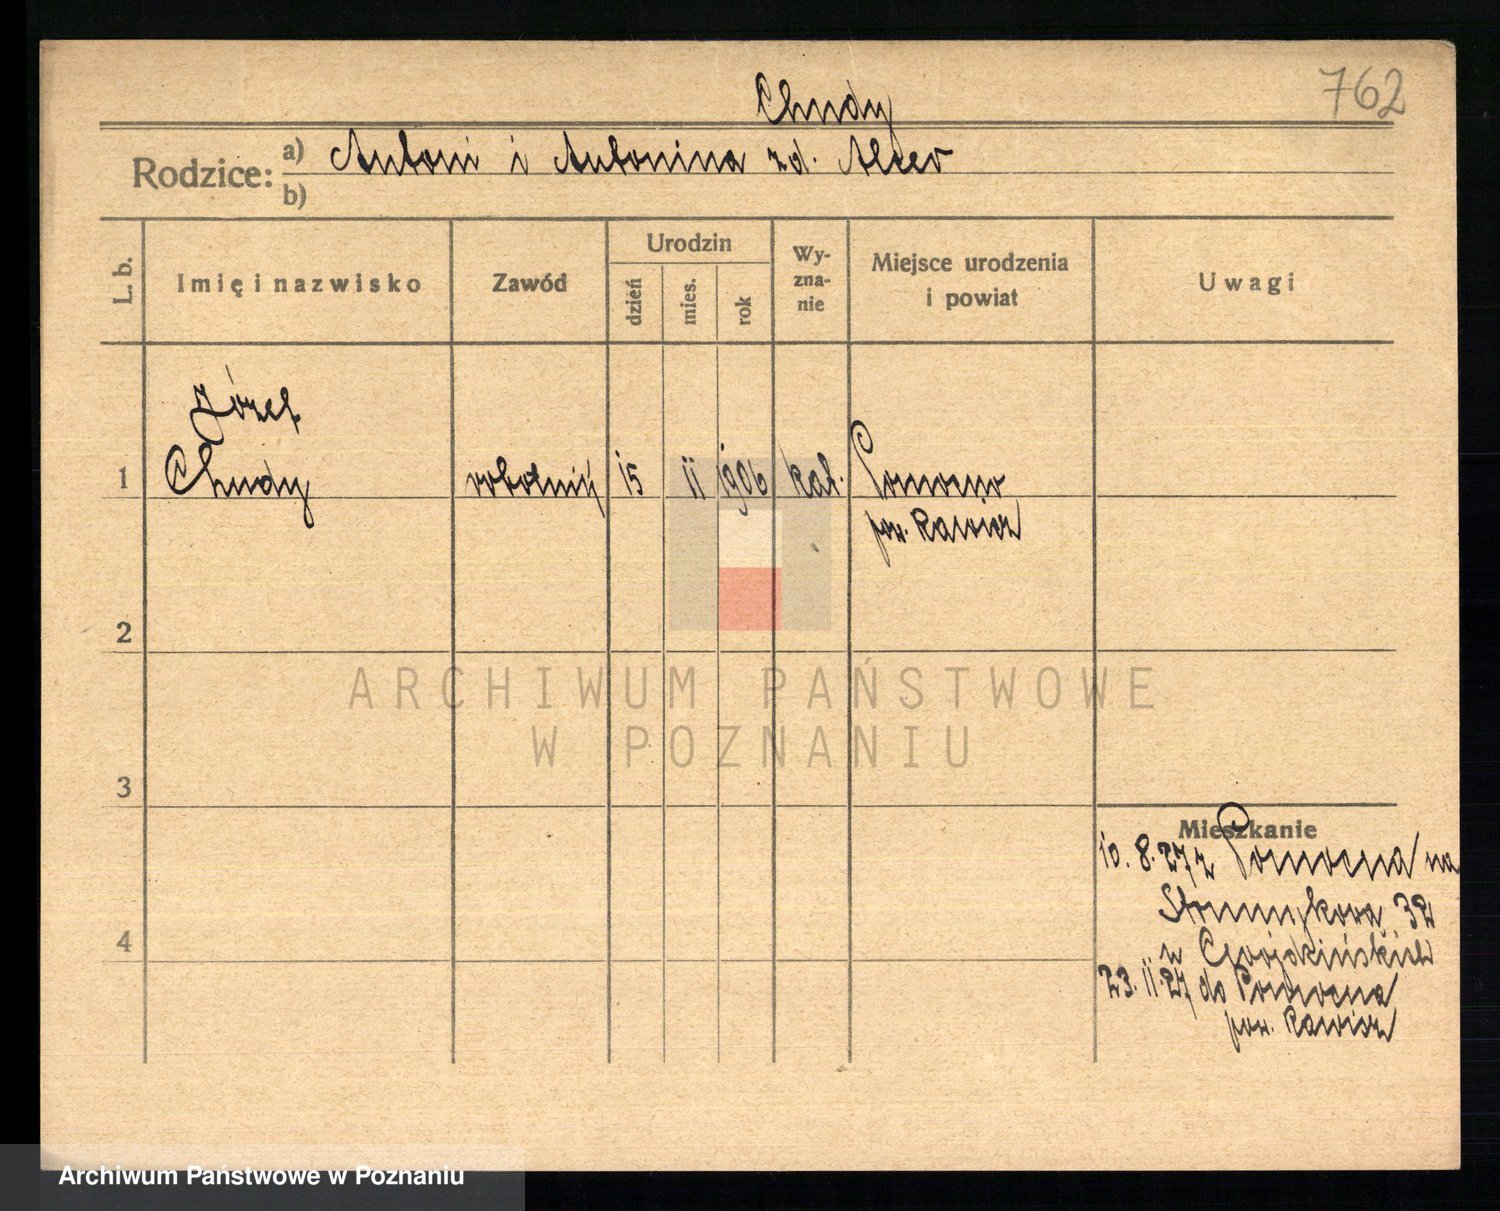 762
Chudy
Rodzice: a) Antoni i Antonina zd.
b)
L. b. Imię i nazwisko Zawód Urodzin dzień mies. rok Wyznanie Miejsce urodzenia i powiat Uwagi
Józef
1 Chudy robotnik 15 11 1906 kat. Pomocno
pow. Rawicz
2
3
4
Mieszkanie
10. 8. 27 z Pomocna na
32
u
23. 11. 27 do Pomocna
pow. Rawicz
ARCHIWUM PAŃSTWOWE
W POZNANIU
Archiwum Państwowe w Poznaniu